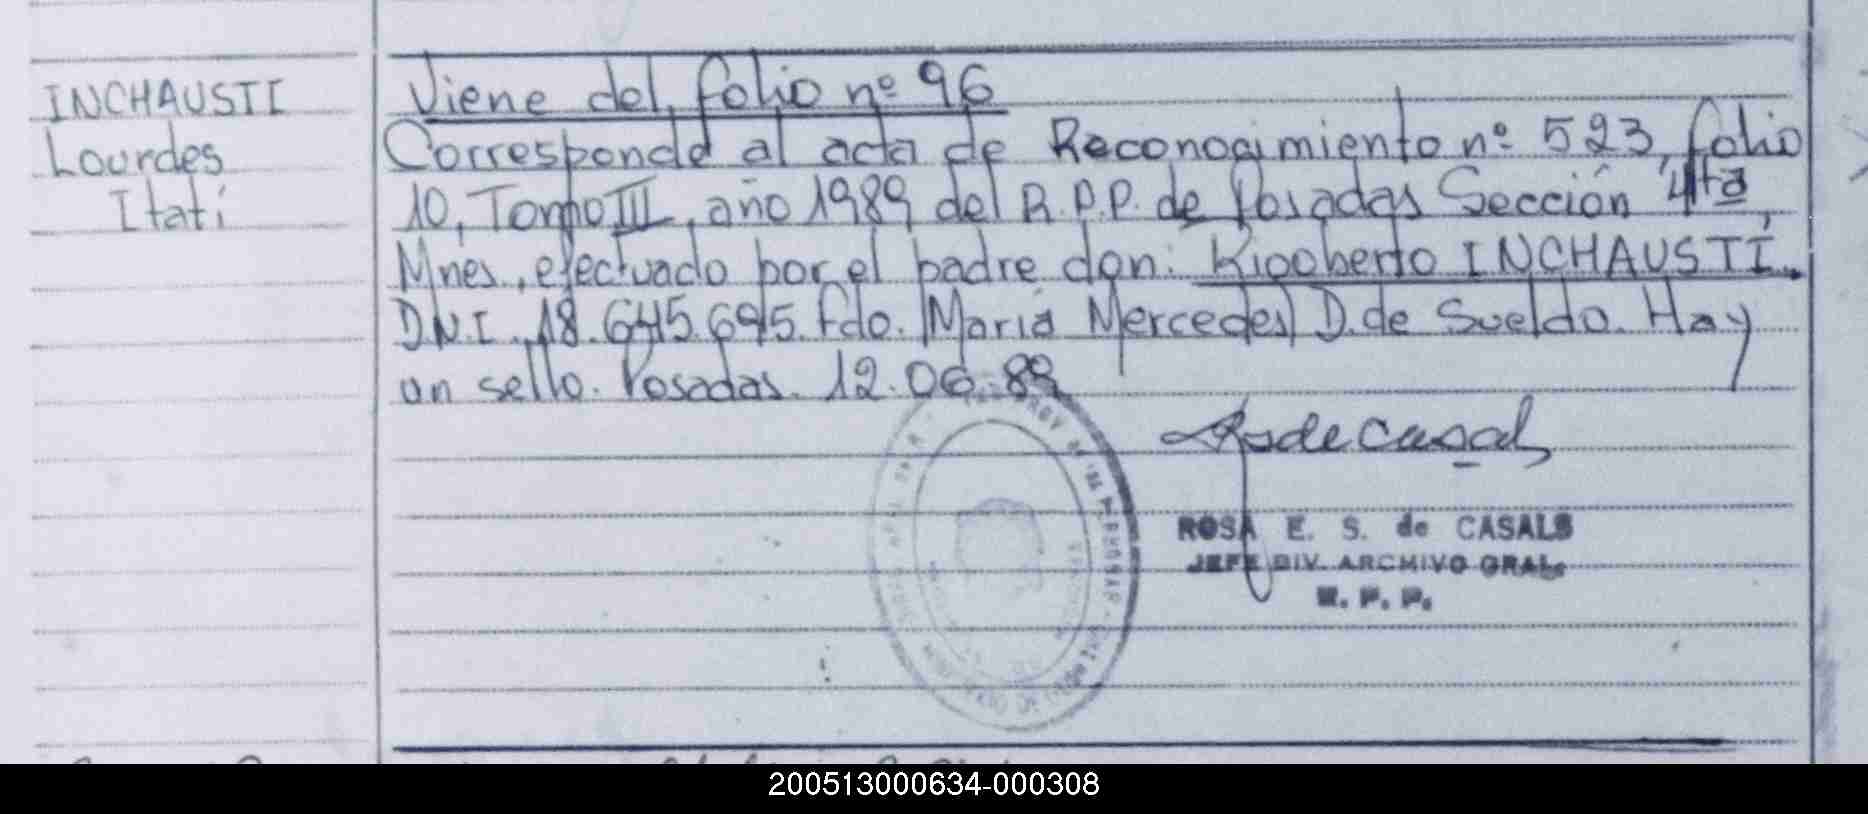 INCHAUSTI
Lourdes
Itatí
Viene del folio nº 96
Corresponde al acta de Reconocimiento nº 523, folio
10, Tomo III, año 1989 del R.P.P. de Posadas Sección 4ta
Mnes., efectuado por el padre don: Rigoberto INCHAUSTI.
D.N.I. 18.645.695. Fdo. María Mercedes D. de Sueldo. Hay
un sello. Posadas. 12.06.89
ROSA E. S. de CASALS
JEFE DIV. ARCHIVO GRAL.
R. P. P.
200513000634-000308